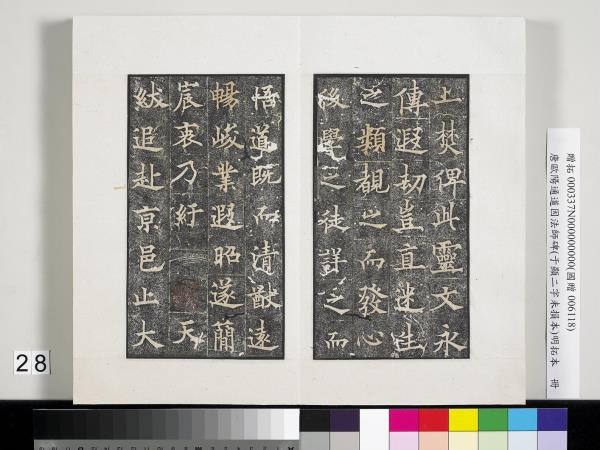 止焚俾此靈文永
傳遐劫豈直迷生
之類覩之而發心
後學之徒詳之而
悟道既而清猷遠
暢峻業遐昭遂簡
宸衷乃紆 天
紱追赴京邑止大
贈拓 000337N000000000(國贈 006118)
唐歐陽通道因法師碑(于顯二字未損本)明拓本 冊
28